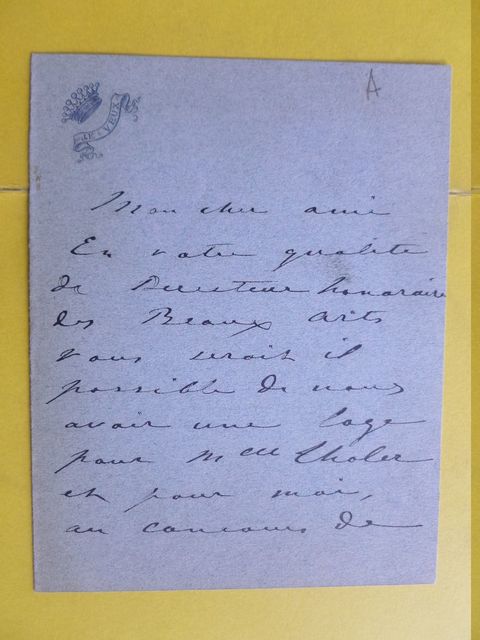 JE VEUX
A
Mon cher ami
En votre qualite
de Directeur honoraire
des Beaux Arts
vous serait il
possible de nous
avoir une loge
pour Melle Choler
et pour moi,
au concours de